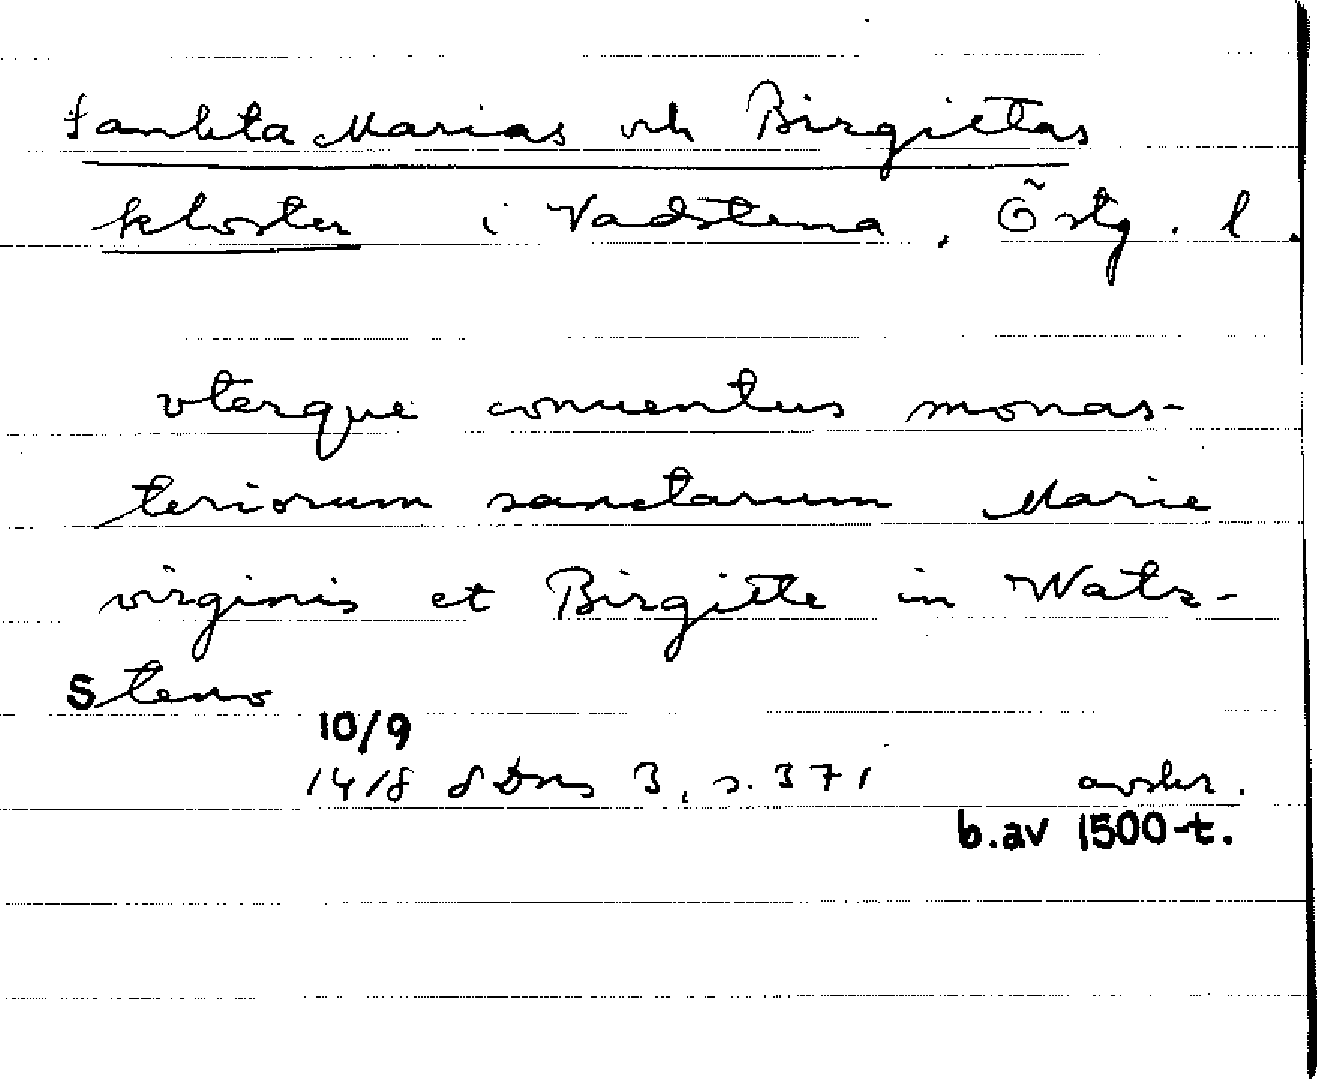 Sankta Marias och Birgittas
kloster i Vadstena, Östg. l.
vterque conuentus monas-
teriorum sanctarum Marie
virginis et Birgitte in Watz-
steno
10/9
1418 SDns 3, s. 371 avskr.
b.av 1500-t.